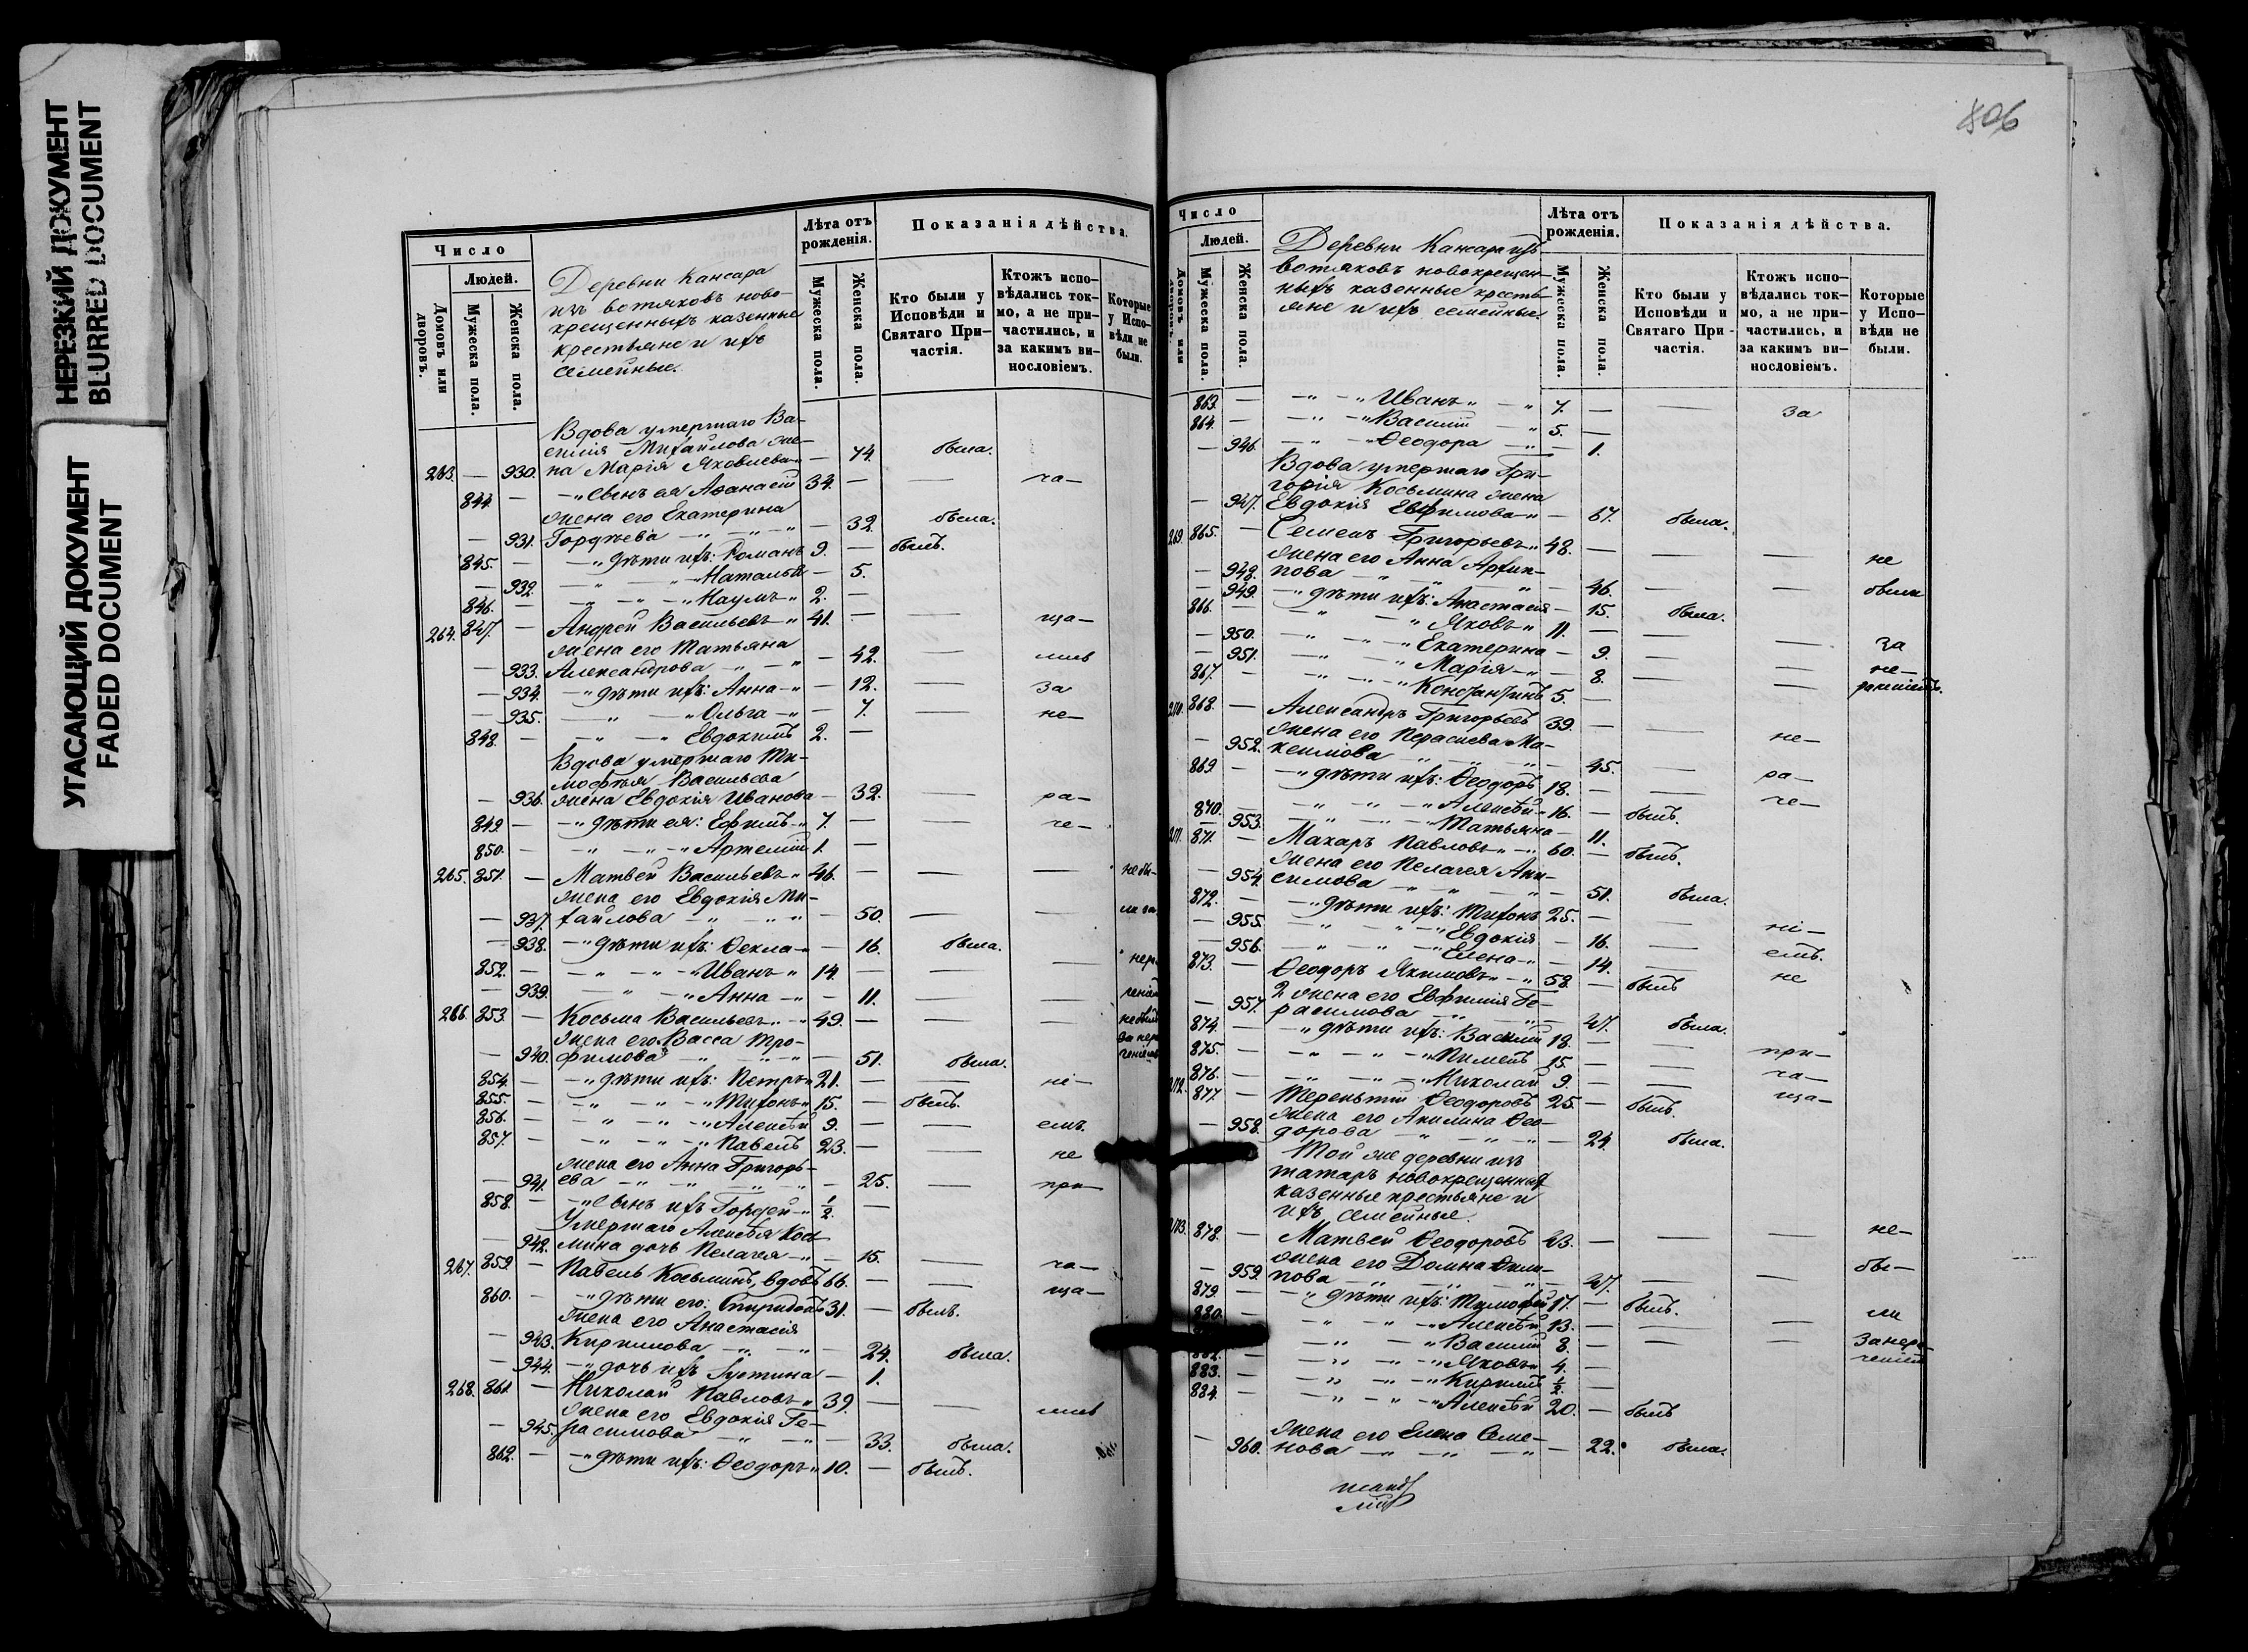 НЕРЕЗКИЙ ДОКУМЕНТ
BLURRED DOCUMENT
УГАСАЮЩИЙ ДОКУМЕНТ
FADED DOCUMENT
Число
Людей.
Домовъ или дворовъ.
Мужеска пола.
Женска пола.
Деревни Кансара
изъ вотяковъ ново-
крещенныхъ казенные
крестьяне и ихъ
семейные.
Лѣта отъ рожденія.
Мужеска пола.
Женска пола.
Показанія дѣйства.
Кто были у Исповѣди и Святаго При-частія.
Ктожъ испо-вѣдались ток-мо, а не при-частились, и за какимъ ви-нословіемъ.
Которые у Испо-вѣди не были.
Вдова умершаго Ва-
силія Михайлова же-
263. — 930. на Марія Яковлева — 74. была.
844. — —„ сынъ ея Аѳанасій 34. — — ча—
жена его Екатерина
— 931. Гордѣева —„ —„ — 32. была.
845. — —„ дѣти ихъ: Романъ 9. — былъ.
— 932. —„ —„ Наталья — 5.
846. — —„ —„ Наумъ „ 2. —
264. 847. — Андрей Васильевъ „ 41. — — ща—
жена его Татьяна
— 933. Александрова —„ —„ — 42. — шев
— 934. —„ дѣти ихъ: Анна „ — 12. — За
— 935. —„ —„ Ольга „ — 7. — не—
848. — —„ —„ Евдокимъ 2. —
Вдова умершаго Ти-
мофѣя Васильева
— 936. жена Евдокія Иванова — 32. — ра—
849. — —„ дѣти ея: Ефимъ „ 7. — — че—
850. — —„ —„ Артемій 1. —
265. 851. — Матвей Васильевъ „ 46. — — — не бы—
жена его Евдокія Ми-
— 937. хайлова —„ —„ — 50. — — ли за
— 938. —„ дѣти ихъ: Ѳекла „ — 16. была.
852. — —„ —„ Иванъ „ 14. — — — нер
— 939. —„ —„ Анна —„ — 11. — —
266. 853. — Косьма Васильевъ „ 49. — — —
жена его Васса Тро-
— 940. фимова —„ —„ — 51. была.
854. — —„ дѣти ихъ: Петръ „ 21. — — ні—
855. — —„ —„ Тихонъ „ 15. — былъ.
856. — —„ —„ Алексѣй 9. — — емъ.
857. — —„ —„ Павелъ 23. — — не
жена его Анна Григорь-
— 941. ева —„ —„ — 25. — при—
858. — —„ сынъ ихъ Гордей „ ½ —
Умершаго Алексѣя Кось-
— 942. мина дочь Пелагея „ — 15. — ча—
267. 859. — Павелъ Косьминъ, вдовъ 66. — — ща—
860. — —„ дѣти его: Спиридонъ 31. — былъ.
жена его Анастасія
— 943. Кирилова —„ —„ — 24. была.
— 944. —„ дочь ихъ Іустина — 1.
268. 861. — Николай Павловъ „ 39. — — шев
жена его Евдокія Ге-
— 945. расимова —„ —„ — 33. была.
862. — —„ дѣти ихъ: Ѳеодоръ „ 10. — былъ.
806
Число
Людей.
Домовъ или дворовъ.
Мужеска пола.
Женска пола.
Деревни Кансара изъ
вотяковъ новокрещен-
ныхъ казенные кресть-
яне и ихъ семейные.
Лѣта отъ рожденія.
Мужеска пола.
Женска пола.
Показанія дѣйства.
Кто были у Исповѣди и Святаго При-частія.
Ктожъ испо-вѣдались ток-мо, а не при-частились, и за какимъ ви-нословіемъ.
Которые у Испо-вѣди не были.
863. — —„ —„ Иванъ „ —„ 7. — — за
864. — —„ —„ Василій —„ 5. —
— 946. —„ —„ Ѳеодора —„ — 1.
Вдова умершаго Гри-
горія Косьмина жена
— 947. Евдокія Евфимова „ — 67. была.
269. 865. — Семенъ Григорьевъ „ 48. — — — не
жена его Анна Архип-
— 948. пова —„ —„ — 46. — — были
— 949. —„ дѣти ихъ: Анастасія — 15. была.
866. — —„ —„ Яковъ „ 11. — — — за
— 950. —„ —„ Екатерина — 9. — — не—
— 951. —„ —„ Марія „ — 8. — —
867. — —„ —„ Константинъ 5. —
270. 868. — Александръ Григорьевъ 39. — — не—
жена его Параскева Ма-
— 952. ксимова —„ —„ — 45. — ра—
869. — —„ дѣти ихъ: Ѳеодоръ 18. — — че—
870. — —„ —„ Алексѣй „ 16. — былъ.
— 953. —„ —„ Татьяна — 11.
271. 871. — Макаръ Павловъ „ 60. — былъ.
жена его Пелагея Ани-
— 954. симова —„ —„ — 51. была.
872. — —„ дѣти ихъ: Тихонъ 25. — — ні—
— 955. —„ —„ Евдокія — 16. — емъ.
— 956. —„ —„ Елена „ — 14. — не
873. — Ѳеодоръ Якимовъ „ 58. — былъ
2 жена его Евфимія Ге-
— 957. расимова —„ —„ — 47. была.
874. — —„ дѣти ихъ: Василій 18. — — при—
875. — —„ —„ Пименъ 15. — — ча—
876. — —„ —„ Николай 9. — — ща—
272. 877. — Терентій Ѳеодоровъ 25. — былъ.
жена его Акилина Ѳео-
— 958. дорова —„ —„ — 24. была.
Той же деревни изъ
татаръ новокрещенныхъ
казенные крестьяне и
ихъ семейные.
273. 878. — Матвей Ѳеодоровъ 43. — — — не—
жена его Домна Фили-
— 959. пова —„ —„ — 47. — — бы—
879. — —„ дѣти ихъ: Тимофей 17. — былъ.
880. — —„ —„ Алексѣй 13. — — — ли
—„ —„ Василій 8. — — —
882. — —„ —„ Яковъ „ 4. —
883. — —„ —„ Кирилъ ½ —
884. — —„ —„ Алексѣй 20. — былъ
жена его Елена Семе-
— 960. нова —„ —„ — 22. была.